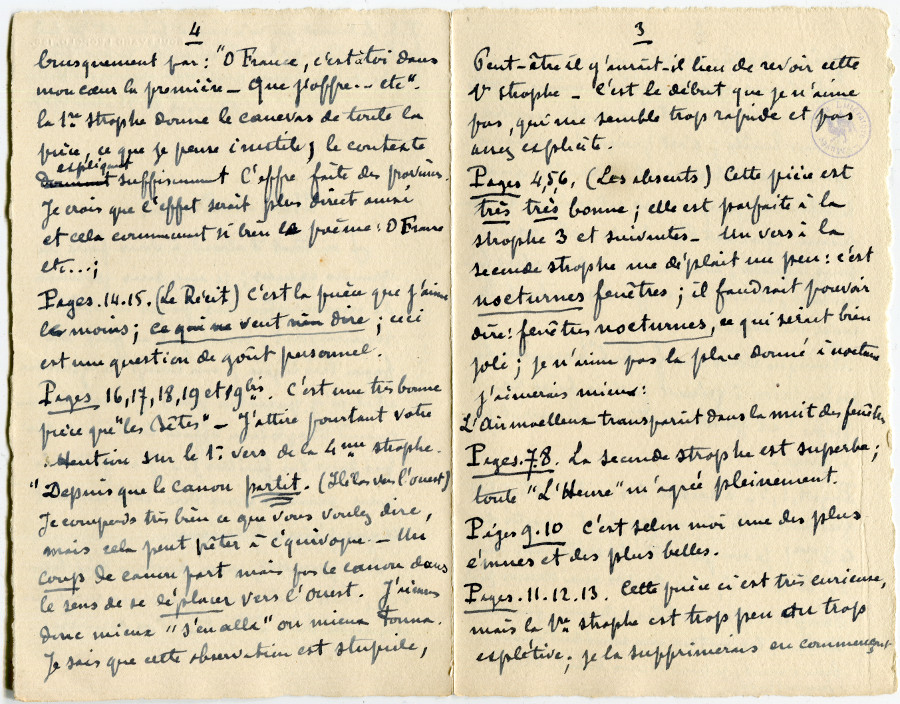 3
Peut-être il y aurait-il lieu de revoir cette
1re strophe - C'est le début que je n'aime
pas, qui me semble trop rapide et pas
assez explicite.
Pages 4,5,6, (Les absents) Cette pièce est
très très bonne ; elle est parfaite à la
strophe 3 et suivantes - Un vers à la
seconde strophe me déplait un peu : c'est
nocturnes fenêtres ; il faudrait pouvoir
dire : fenêtres nocturnes, ce qui serait bien
joli ; je n'aime pas la place donné à nocturne
j'aimerais mieux :
L'Air moelleux transparait dans la nuit des fenêtres
Pages. 78. La seconde strophe est superbe ;
toute "L'Heure" m'agrée pleinement.
Pages 9.10 C'est selon moi une des plus
émues et des plus belles.
Pages. 11. 12. 13. Cette pièce ci est très curieuse,
mais la 1re strophe est trop peu ou trop
explétive ; je la supprimerais en commençant
4
brusquement par : "O France, c'est à toi dans
mon cœur la première - Que j'offre... etc".
la 1re strophe donne le canevas de toute la
pièce, ce que je pense inutile ; le contexte
expliquant
donnant suffisamment l'offre faite des provinces.
Je crois que l'effet serait plus direct ainsi
et cela commencant si bien le poème : O France
etc... ;
Pages. 14. 15. (Le Récit) C'est la pièce que j'aime
le moins ; ce qui ne veut rien dire ; ceci
est une question de goût personnel.
Pages 16, 17, 18, 19 et 19 bis. C'est une très bonne
pièce que "les Bêtes" - J'attire pourtant votre
attention sur le 1er vers de la 4me strophe.
"Depuis que le canon partit. (Hélas vers l'ouest)
Je comprends très bien ce que vous voulez dire,
mais cela peut prêter à l'équivoque. - Un
coup de canon part mais pas le canon dans
le sens de se déplacer vers l'Ouest. J'aimerais
donc mieux "S'en alla" ou mieux Tonna.
Je sais que cette observation est stupide,